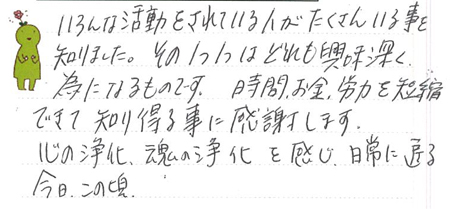 いろんな活動をされている人がたくさんいる事を
知りました。その1つ1つはどれも興味深く、
為になるものです。時間、お金、労力を短縮
できて知り得る事に感謝します。
心の浄化、魂の浄化を感じ、日常に戻る
今日、この頃、